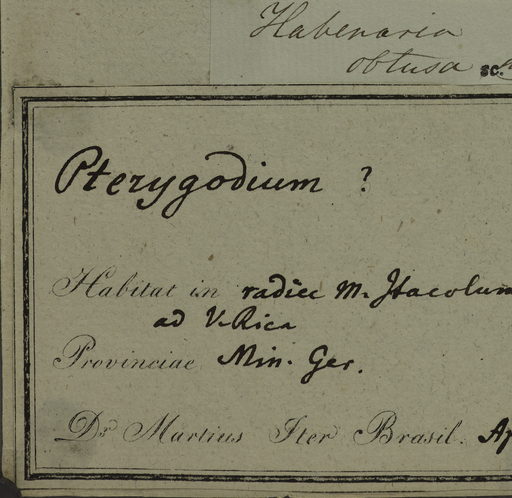 Habenaria
obtusa sc.
Pterygodium ?
Habitat in radice M. Itacolum
ad V. Rica
Provinciae Min. Ger.
Dr Martius Iter Brasil. Ap